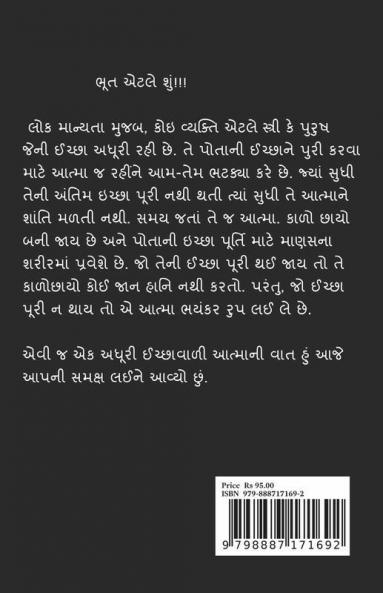 ભૂત એટલે શું!!!
લોક માન્યતા મુજબ, કોઇ વ્યક્તિ એટલે સ્ત્રી કે પુરુષ
જેની ઈચ્છા અધૂરી રહી છે. તે પોતાની ઈચ્છાને પુરી કરવા
માટે આત્મા જ રહીને આમ-તેમ ભટક્યા કરે છે. જ્યાં સુધી
તેની અંતિમ ઇચ્છા પૂરી નથી થતી ત્યાં સુધી તે આત્માને
શાંતિ મળતી નથી. સમય જતાં તે જ આત્મા. કાળો છાયો
બની જાય છે અને પોતાની ઇચ્છા પૂર્તિ માટે માણસના
શરીરમાં પ્રવેશે છે. જો તેની ઈચ્છા પૂરી થઈ જાય તો તે
કાળોછાયો કોઈ જાન હાનિ નથી કરતો. પરંતુ, જો ઈચ્છા
પૂરી ન થાય તો એ આત્મા ભયંકર રુપ લઈ લે છે.
એવી જ એક અધૂરી ઈચ્છાવાળી આત્માની વાત હું આજે
આપની સમક્ષ લઈને આવ્યો છું.
Price Rs 95.00
ISBN 979-888717169-2
9 798887 171692